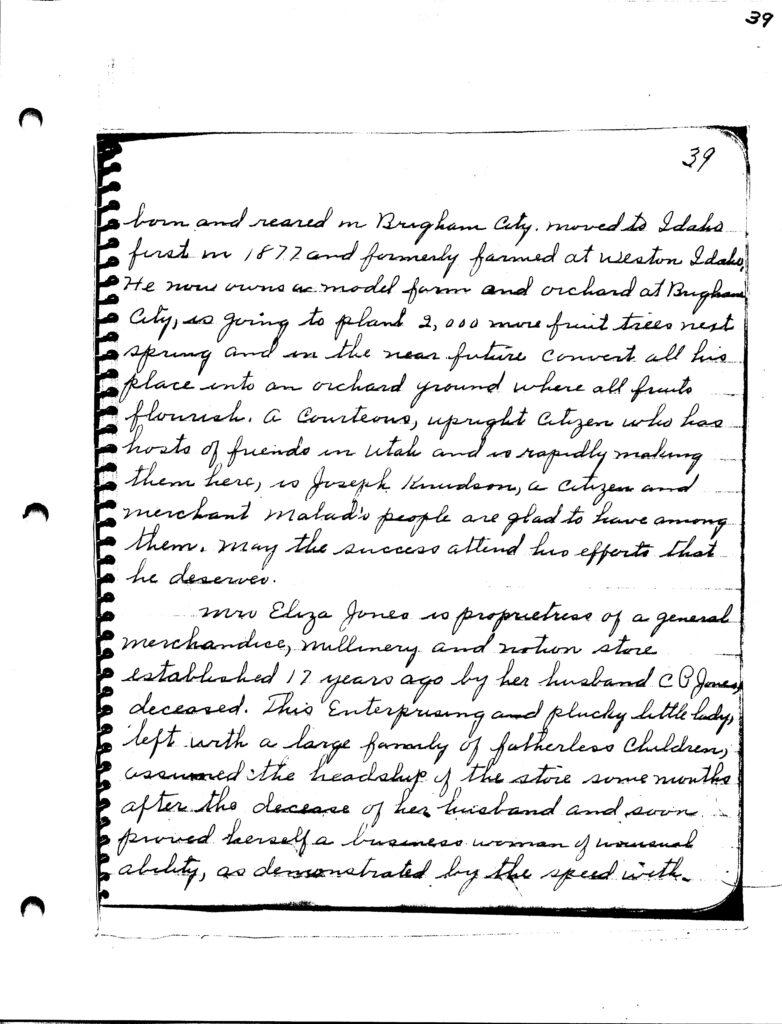 39
39
born and reared in Brigham City. moved to Idaho
first in 1877 and formerly farmed at Weston Idaho,
He now owns a model farm and orchard at Brigham
City, is going to plant 2,000 more fruit trees next
spring and in the near future convert all his
place into an orchard ground where all fruits
flourish. A Courteous, upright Citizen who has
hosts of friends in Utah and is rapidly making
them here, is Joseph Knudson, a Citizen and
merchant Malad's people are glad to have among
them. May the success attend his efforts that
he deserves.
Mrs Eliza Jones is proprietress of a general
merchandice, millinery and notion store
established 17 years ago by her husband C P Jones,
deceased. This Enterprising and plucky little lady,
left with a large family of fatherless Children,
assumed the headship of the store some months
after the decease of her husband and soon
proved herself a business woman of unusual
ability, as demonstrated by the speed with